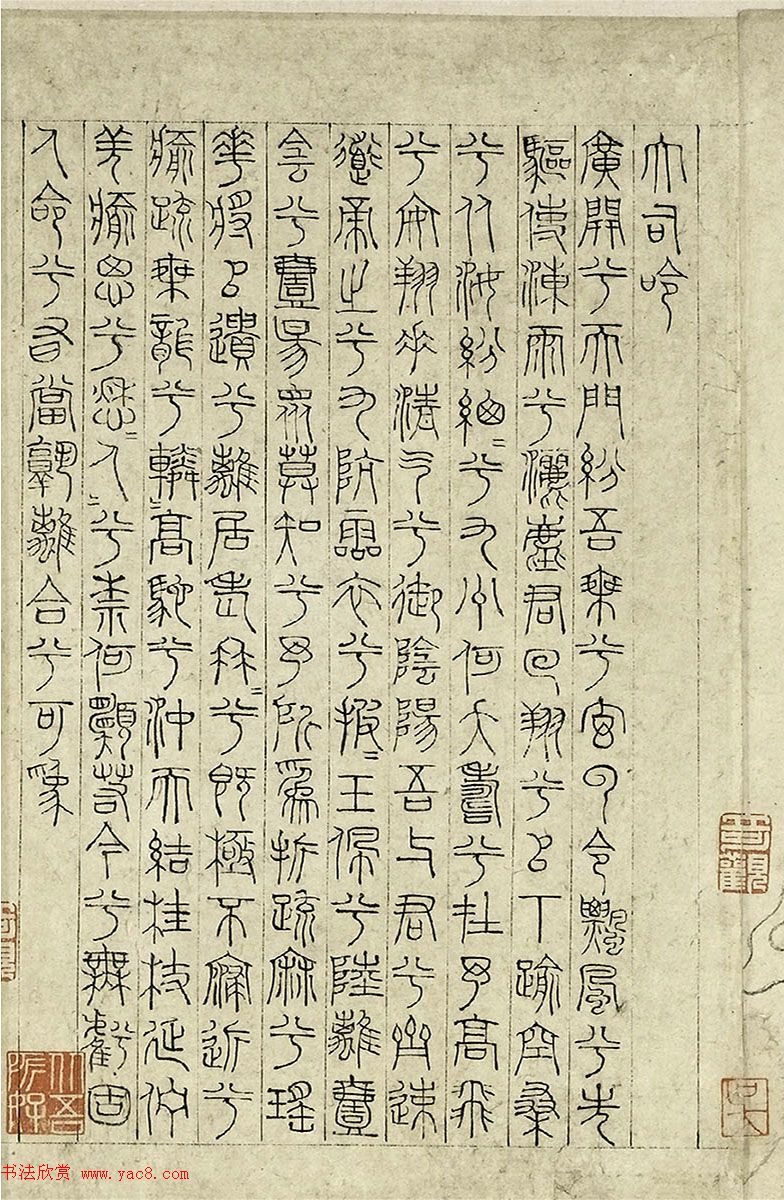 大司命
廣開兮天門紛吾乘兮玄雲令飄風兮先
驅使涷雨兮灑塵君回翔兮以下踰空桑
兮从汝紛緫〻兮九州何夭壽兮在予高飛
兮安翔乘清气兮御陰陽吾与君兮齊速
導帝之兮九阬靈衣兮披〻玉佩兮陸離壹
陰兮壹陽眾莫知兮予所為折疏麻兮瑤
華將以遺兮離居老冉〻兮既極不寖近兮
愈疏乘龍兮轔〻高駝兮沖天結桂枝延佇
羌愈思兮愁〻人〻兮柰何願若今兮無虧固
人命兮有當孰離合兮可為
书法欣赏 www.yac8.com